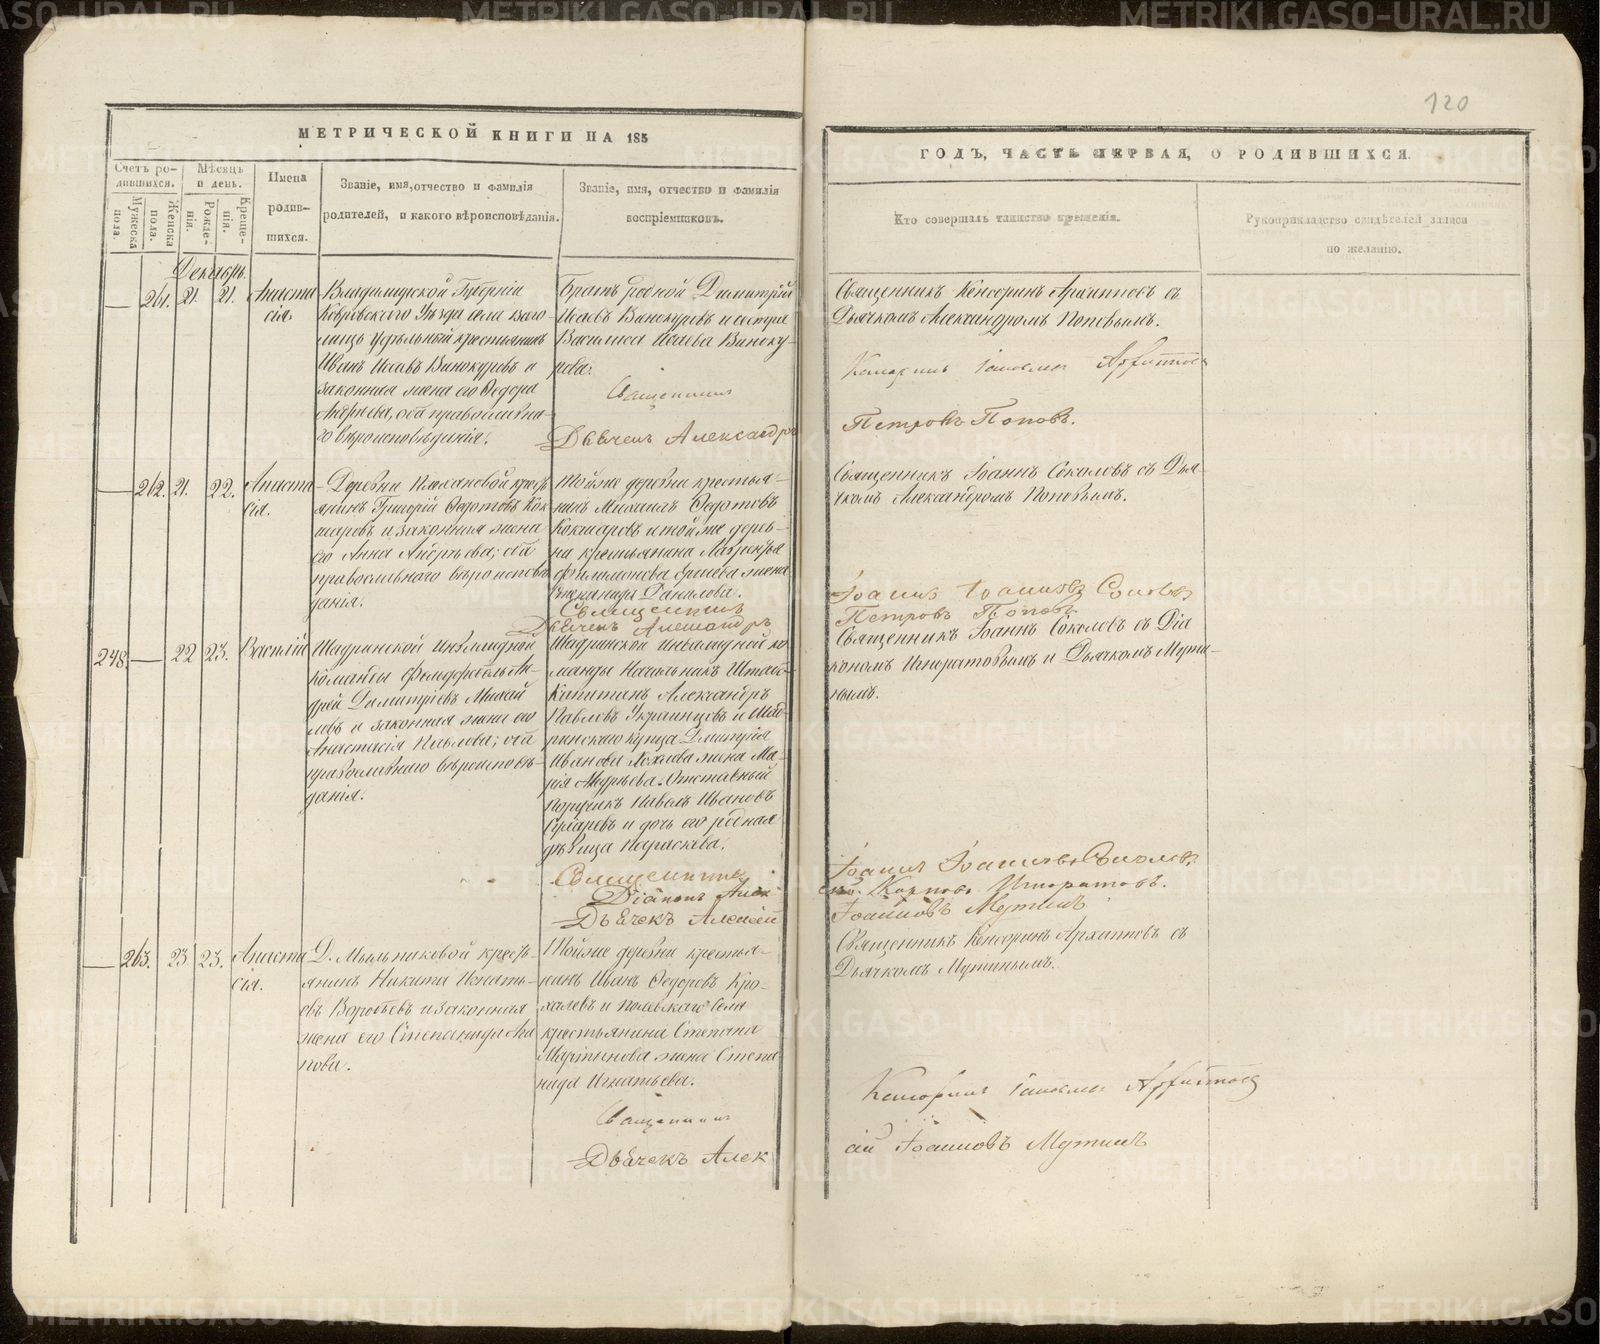 120
МЕТРИЧЕСКОЙ КНИГИ НА 185
ГОДЪ, ЧАСТЬ ПЕРВАЯ, О РОДИВШИХСЯ.
Счетъ ро-
дившихся.
Мужеска
пола.
Женска
пола.
Мѣсяцъ
и день.
Рожде-
нія.
Креще-
нія.
Имена
родив-
шихся.
Званіе, имя, отчество и фамилія
родителей, и какого вѣроисповѣданія.
Званіе, имя, отчество и фамилія
воспріемниковъ.
Кто совершалъ таинство крещенія.
Рукоприкладство свидѣтелей записи
по желанію.
Декабрь.
— 261. 21. 21. Анаста
сія.
Владимирской Губерніи
Ковровскаго Уѣзда села
Удѣльный крестьянинъ
Иванъ Исаевъ Винокуровъ и
законная жена его Ѳедора
Андреева, оба православна-
го вѣроисповѣданія.
Братъ родной Димитрій
Исаевъ Винокуровъ и сестра
Василиса Исаева Виноку-
рова.
Священникъ
Дьячекъ Александръ
Священникъ Кенсоринъ Архиповъ съ
Дьячкомъ Александромъ Поповымъ.
Кенсоринъ Архиповъ
Петровъ Поповъ.
— 262. 21. 22. Анаста
сія.
Деревни кресть
янинъ Григорій Ѳедотовъ Кок
шаровъ и законная жена
его Анна Андреева; оба
православнаго вѣроисповѣ
данія.
Тойже деревни крестья-
нинъ Михаилъ Ѳедотовъ
Кокшаровъ и той же дерев-
ни крестьянина Лаврентья
Филимонова жена
Данилова.
Священникъ
Дьячекъ Александръ
Священникъ Іоаннъ Соколовъ съ Дья-
чкомъ Александромъ Поповымъ.
Іоаннъ Іоанновъ Соколовъ
Петровъ Поповъ
248. — 22 23. Василій
Шадринской Инвалидной
команды Фельдфебель Ан-
дрей Димитріевъ Михай
ловъ и законная жена его
Анастасія Павлова; оба
православнаго вѣроисповѣ-
данія.
Шадринской инвалидной ко
манды Начальникъ Штабсъ-
Капитанъ Александръ
Павловъ Украинцовъ и Шад-
ринскаго купца Дмитрія
Иванова Хохлова жена Ма-
рія Андреева. Отставный
Поручикъ Павелъ Ивановъ
и дочь его родная
дѣвица Параскева.
Священникъ
Діаконъ Алек
Дьячекъ Алексѣй
Священникъ Іоаннъ Соколовъ съ Діа
кономъ Игноратовымъ и Дьячкомъ Мути-
нымъ.
Іоаннъ Іоанновъ Соколовъ
Карповъ Игноратовъ.
Іоанновъ Мутинъ
— 263. 23 23. Анаста
сія.
Д. Мыльниковой кресть-
янинъ Никита Игнать-
евъ Воробьевъ и законная
жена его Степанида Ага
пова.
Тойже деревни крестья-
нинъ Иванъ Ѳедоровъ Кро-
халевъ и Полевскаго села
крестьянина Степана
Мартынова жена Степа
нида Игнатьева.
Священникъ
Дьячекъ Алек
Священникъ Кенсоринъ Архиповъ съ
Дьячкомъ Мутинымъ.
Кенсоринъ Архиповъ
ѣй Іоанновъ Мутинъ
METRIKI.GASO-URAL.RU